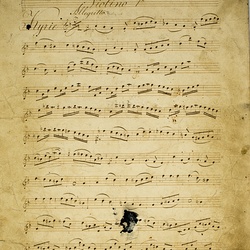 Violino 1
Allegretto
Kyrie